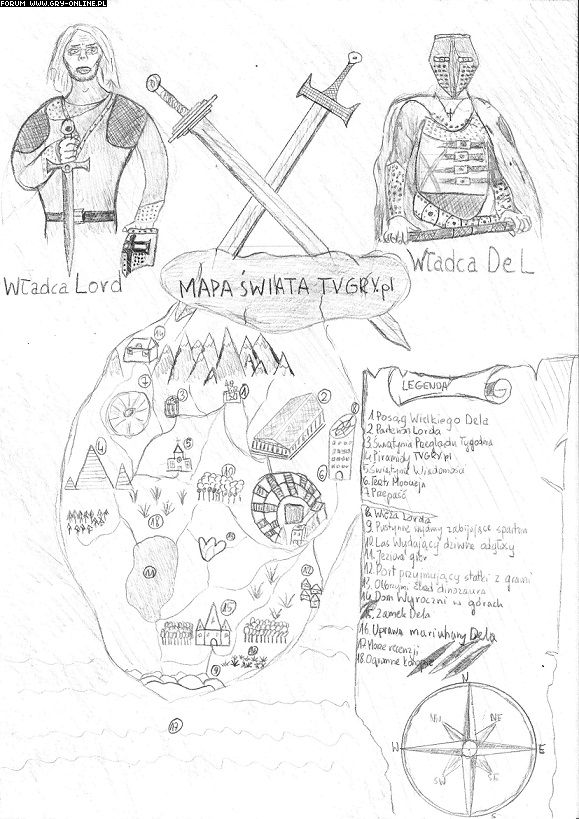 FORUM WWW.GRY-ONLINE.PL
Władca Lord
Władca DeL
MAPA ŚWIATA TVGRY.pl
LEGENDA
1. Posąg Wielkiego Dela
2. Partenon Lorda
3. Świątynia Przeglądu Tygodnia
4. Piramidy TVGRY.pl
5. Świątynie Wiadomości
6. Teatr
7. Przepaść
8. Wieża Lorda
9. Pustynne wydmy zabijające spartan
10. Las Wydający dziwne odgłosy
11. Jezioro gier
12. Port przyjmujący statki z grami
13. Olbrzymi Ślad dinozaura
14. Dom Wyroczni w górach
15. Zamek Dela
16. Uprawa mariuhany Dela
17. Morze recenzji
18. Ogromne konopie
14
7
3
1
2
8
4
5
6
10
18
11
12
15
9
17
N
NW
NE
W
E
SW
SE
S